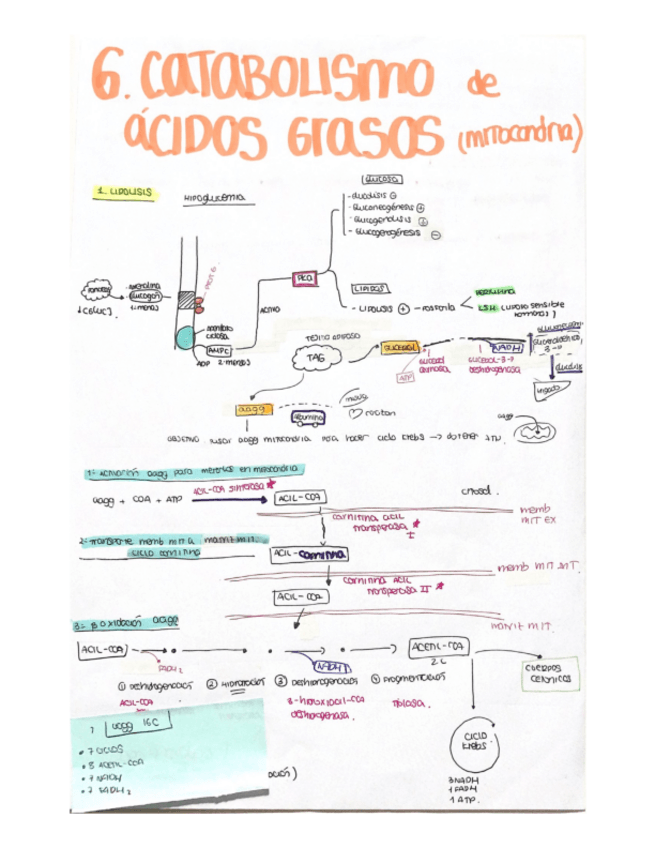 6. CATABOLISMO de
ÁCIDOS GRASOS (mitocondria)
1. LIPOLISIS
HIPOGLUCEMIA
GLUCOSA
- GLUCOLISIS
- GLUCONEOGÉNESIS +
- GLUCOGENOLISIS +
- GLUCOGENOGÉNESIS -
PROT G
PKA
páncreas
glucagón
LIPIDOS
PERILIPINA
- LIPOLISIS + - FOSFORILA
LSH (LIPASA sensible
hormonas)
ACTIVO
AMPC
TEJIDO ADIPOSO
TAG
GLICEROL
NADH
glicerol
ATP
glicerol-3-P
deshidrogenasa
hígado
aagg
albumina
corazon
aagg
OBJETIVO: usar aagg mitocondria para hacer ciclo Krebs → obtener ATP.
1- ACTIVACIÓN aagg para meterlos en mitocondria
aagg + COA + ATP
ACIL-COA sintetasa *
ACIL-COA
citosol.
memb
MIT EX
carnitina acil
transferasa *
I
2- Transporte memb mit a matriz mit.
CICLO carnitina
ACIL-carnitina
memb MIT INT.
carnitina ACIL
transferasa II *
ACIL-COA
matriz MIT.
3- β oxidación aagg
ACIL-COA
FADH2
NADH
ACETIL-COA
2C
CUERPOS
CETONICOS
① Deshidrogenación
② Hidratación
③ Deshidrogenación
④ Fragmentación
ACIL-COA
3-hidroxiacil-COA
deshidrogenasa.
tiolasa.
aagg 16C
• 7 CICLOS
• 8 ACETIL-COA
• 7 NADH
• 7 FADH2
CICLO
Krebs
3 NADH
1 FADH
1 ATP.